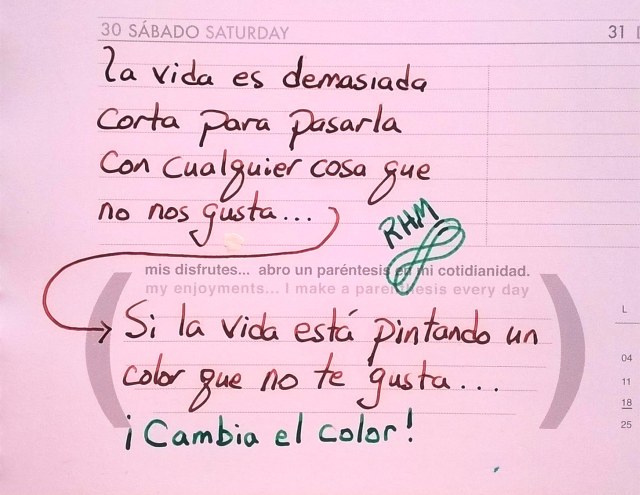 30 SÁBADO SATURDAY
31
La vida es demasiada
corta para pasarla
con cualquier cosa que
no nos gusta...
RHM
mis disfrutes... abro un paréntesis en mi cotidianidad.
my enjoyments... I make a parenthesis every day
Si la vida está pintando un
color que no te gusta...
¡Cambia el color!
L
04
11
18
25